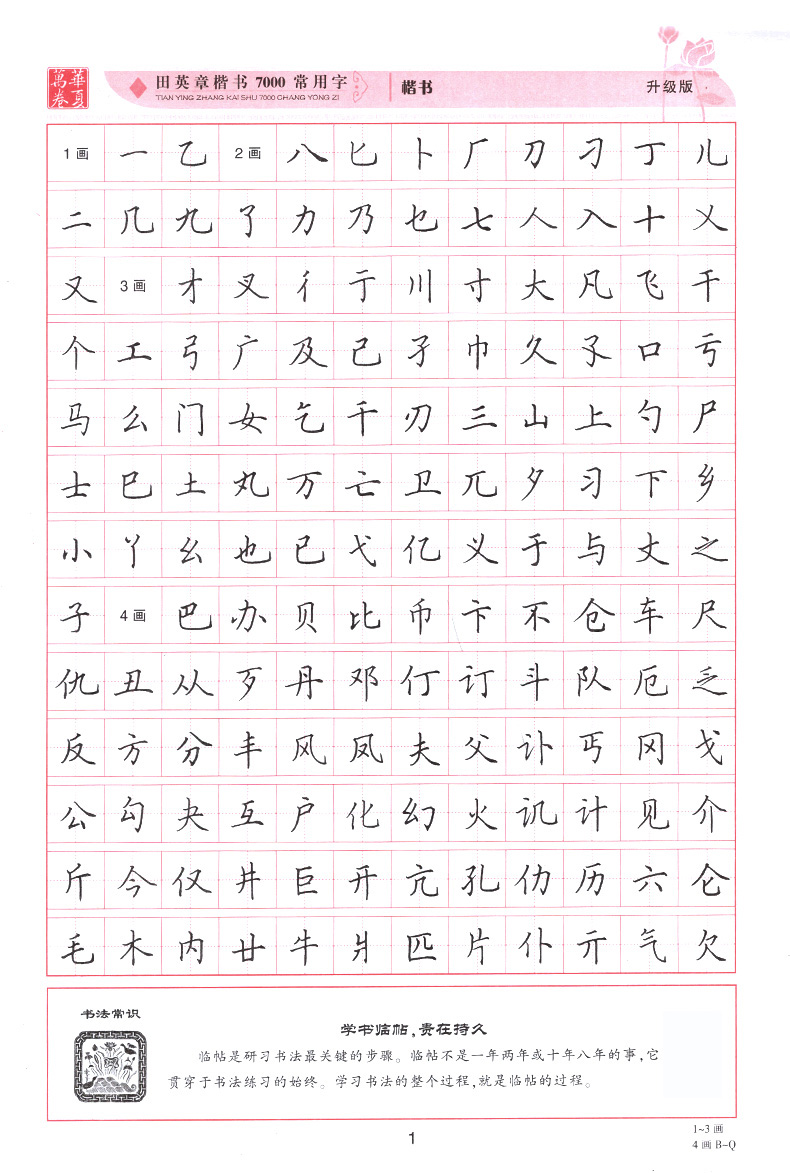 華夏萬卷
田英章楷书 7000 常用字
TIAN YING ZHANG KAI SHU 7000 CHANG YONG ZI
楷书
升级版
1画 一 乙 2画 八 匕 卜 厂 刀 刁 丁 儿
二 几 九 了 力 乃 乜 七 人 入 十 乂
又 3画 才 叉 彳 亍 川 寸 大 凡 飞 干
个 工 弓 广 及 己 孑 巾 久 孓 口 亏
马 么 门 女 乞 千 刃 三 山 上 勺 尸
士 巳 土 丸 万 亡 卫 兀 夕 习 下 乡
小 丫 幺 也 已 弋 亿 义 于 与 丈 之
子 4画 巴 办 贝 比 币 卞 不 仓 车 尺
仇 丑 从 歹 丹 邓 仃 订 斗 队 厄 乏
反 方 分 丰 风 凤 夫 父 讣 丐 冈 戈
公 勾 夬 互 户 化 幻 火 讥 计 见 介
斤 今 仅 井 巨 开 亢 孔 仂 历 六 仑
毛 木 内 廿 牛 爿 匹 片 仆 亓 气 欠
书法常识
学书临帖，贵在持久
临帖是研习书法最关键的步骤。临帖不是一年两年或十年八年的事，它
贯穿于书法练习的始终。学习书法的整个过程，就是临帖的过程。
1
1~3画
4画 B-Q